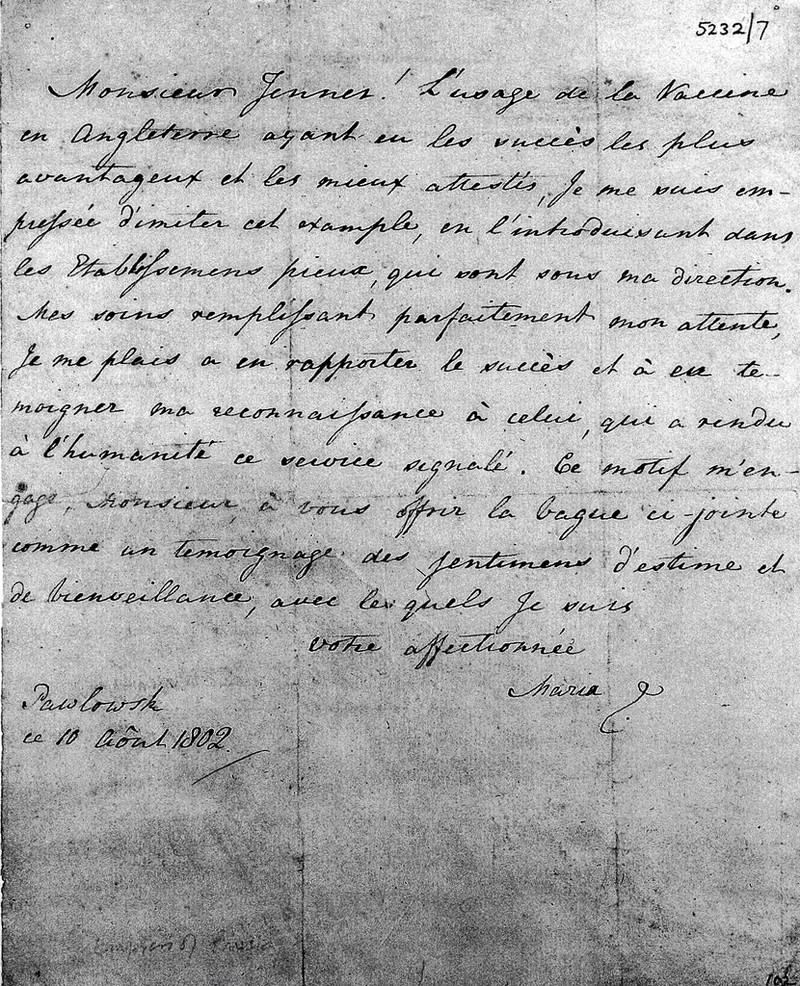 5232/7
Monsieur Jenner! L'usage de la Vaccine
en Angleterre ayant eu les succès les plus
avantageux et les mieux attestés, Je me suis em-
pressée d'imiter cet example, en l'introduisant dans
les Etablissemens pieux, qui sont sous ma direction.
Mes soins remplissant parfaitement mon attente,
Je me plais a en rapporter le succès et à en te-
moigner ma reconnaissance à celui, qui a rendu
à l'humanité ce service signalé. Ce motif m'en-
gage, Monsieur, à vous offrir la bague ci-jointe
comme un temoignage des sentimens d'estime et
de bienveillance, avec les quels Je suis
votre affectionnée
Maria
Pawlowsk
ce 10 Aôut 1802.